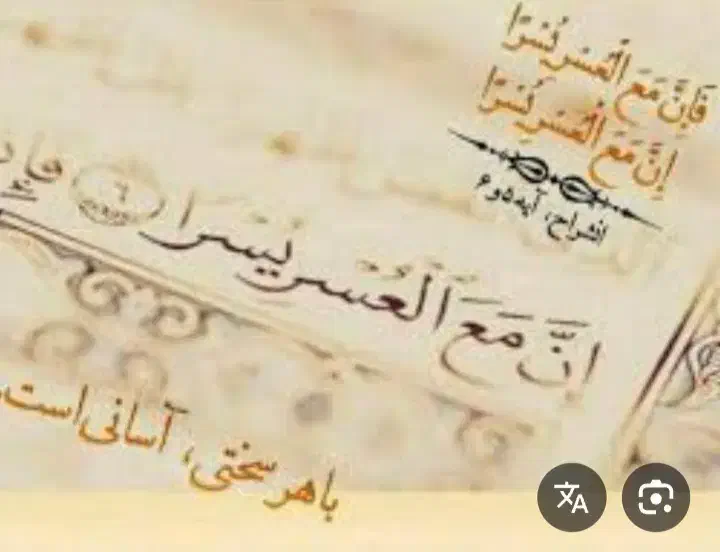 فَإِنَّ مَعَ الْعُسْرِ يُسْرًا
إِنَّ مَعَ الْعُسْرِ يُسْرًا
انشراح، آیه ۵ و ۶
إِنَّ مَعَ الْعُسْرِ يُسْرًا ٦
با هر سختی، آسانی است.